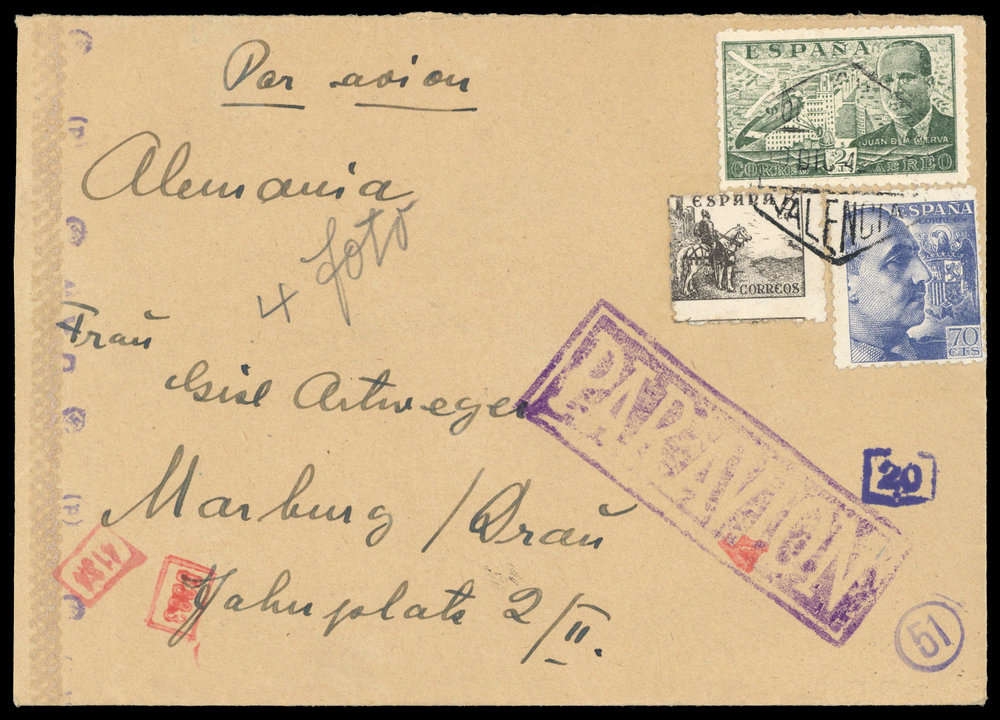 Par avion
ESPAÑA
JUAN DE LA CIERVA
CORREO AEREO
VALENCIA
ESPAÑA
CORREOS
ESPAÑA
CORREOS
70
CTS
Alemania
foto
Frau
Gisl Artweger
Marburg / Drau
Jahnplatz 2/II.
PAR AVION
20
51